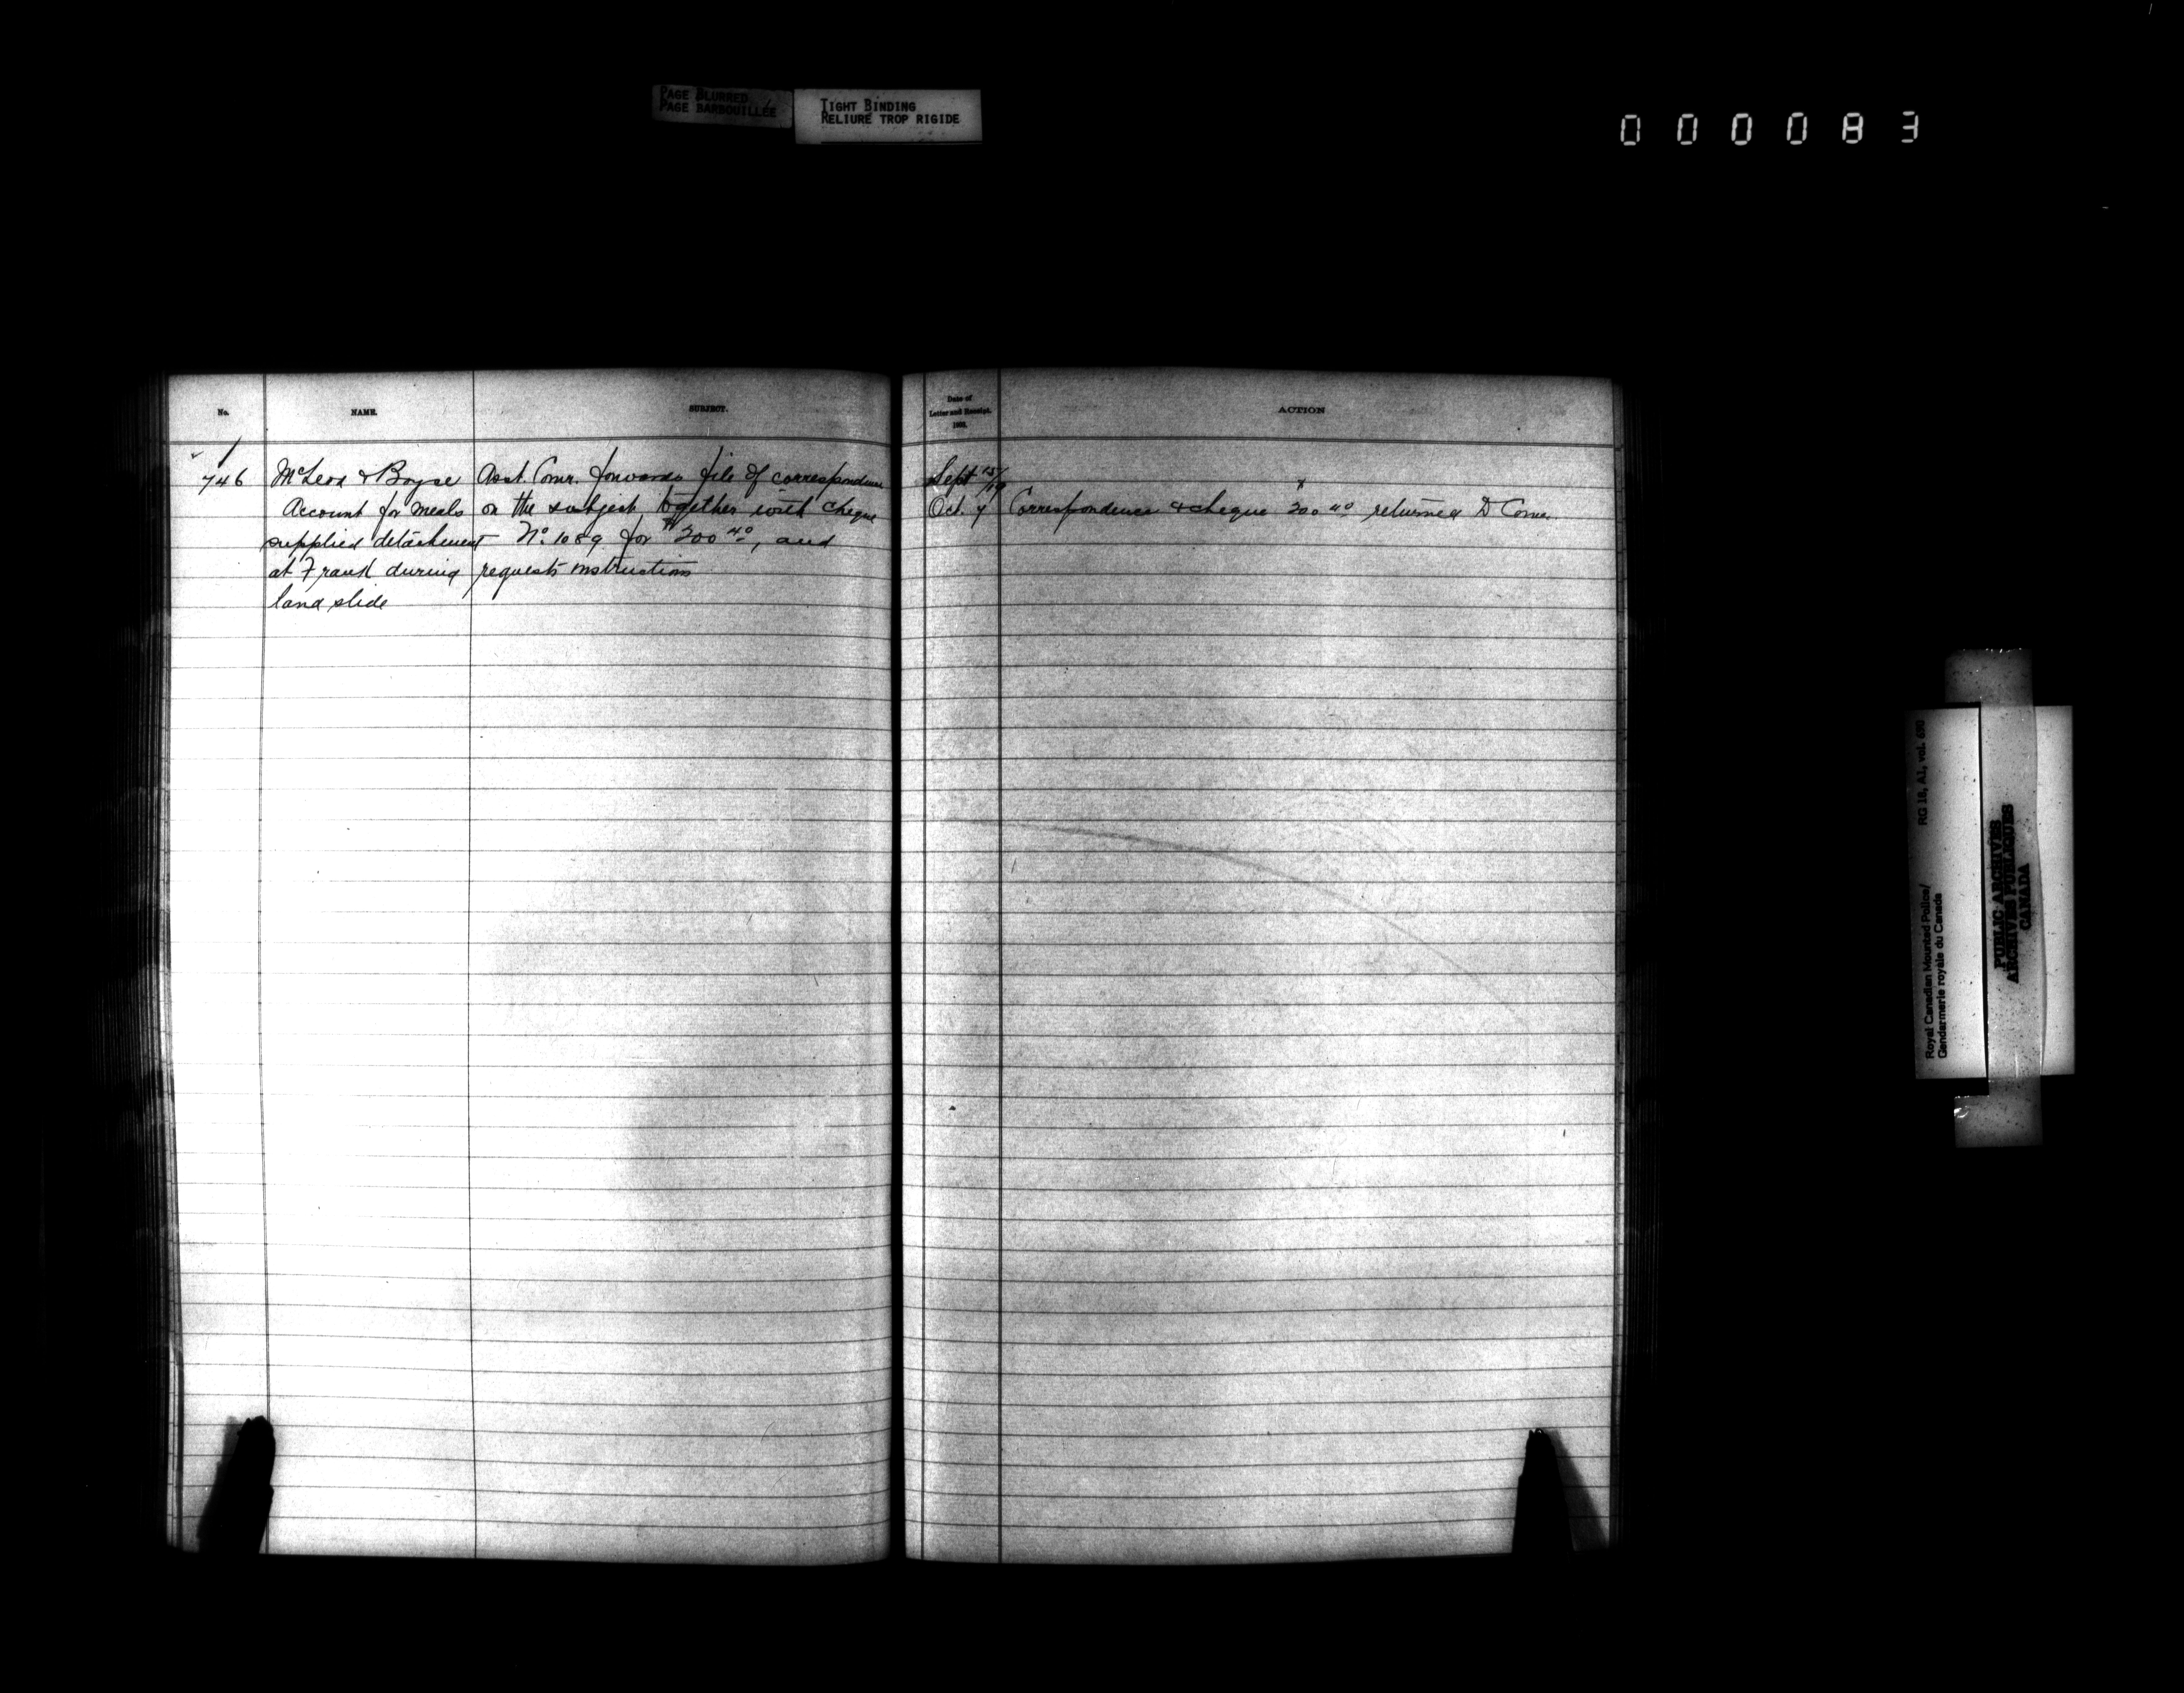 PAGE BLURRED
PAGE BARBOUILLÉE
TIGHT BINDING
RELIURE TROP RIGIDE
000083
No.
NAME.
SUBJECT.
Date of
Letter and Receipt.
1903.
ACTION
746
McLeod & Boyse
Account for meals
supplied detachment
at Frank during
land slide
Asst. Comr. forwards file of correspondence
on the subject together with cheque
No. 1089 for $200 40, and
requests instructions
Sept 15/19
Oct. 7 Correspondence & cheque 200 40 returned D Comr.
RG 18, A1, vol.
Royal Canadian Mounted Police/
Gendarmerie royale du Canada
PUBLIC ARCHIVES
ARCHIVES PUBLIQUES
CANADA